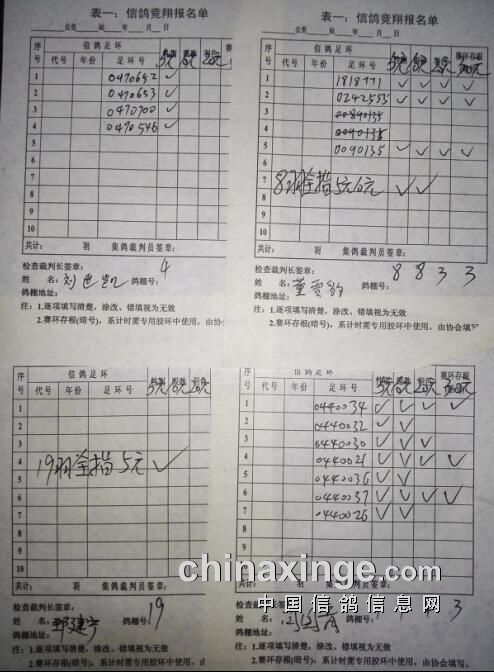 表一：信鸽竞翔报名单
公里 站 年 月 日
序号 信鸽足环
代号 年份 足环号 5元
1 0470652 ✓
2 0470653 ✓
3 0470700 ✓
4 0470546 ✓
5
6
7
8
9
10
共计： 羽 集鸽裁判员签章：
检查裁判长签章： 4
姓 名： 鸽棚号：
鸽棚地址：
注：1.逐项填写清楚，涂改、错填视为无效
2.赛环存根(暗号)，累计时需专用胶环中使用，由协会
表一：信鸽竞翔报名单
公里 站 年 月 日
序号 信鸽足环 赛环存根
代号 年份 足环号
1 1818771 ✓ ✓ ✓ ✓
2 0242555 ✓ ✓ ✓ ✓
3 00890135
4 0090135
5 0090135 ✓ ✓ ✓ ✓
6
7 8羽全指5元10元 ✓ ✓
8
9
10
共计： 羽 集鸽裁判员签章：
检查裁判长签章： 8 8 3 3
姓 名： 鸽棚号：
鸽棚地址：
注：1.逐项填写清楚，涂改、错填视为无效
2.赛环存根(暗号)，累计时需专用胶环中使用，由协会填写
序号 信鸽足环
代号 年份 足环号
1
2
3
4 19羽全指5元 ✓
5
6
7
8
9
10
共计： 羽 集鸽裁判员签章：
检查裁判长签章： 19
姓 名： 鸽棚号：
鸽棚地址：
注：1.逐项填写清楚，涂改、错填视为无效
2.赛环存根(暗号)，累计时需专用胶环中使用，由协
序号 信鸽足环 赛环存根
代号 年份 足环号
1 0440034 ✓ ✓ ✓ ✓
2 0440032 ✓ ✓
3 0440030 ✓ ✓ ✓
4 0440021 ✓ ✓ ✓ ✓
5 0440036 ✓ ✓
6 0440037 ✓ ✓ ✓ ✓
7 0440026 ✓ ✓
8
9
10
检查裁判长签章：
姓 名： 3
鸽棚地址：
注：1.逐项填写清楚，涂改、错填视为无效
2.赛环存根(暗号)，累计时需专用胶环中使用，由协会填写
chinaxinge.com
中国信鸽信息网